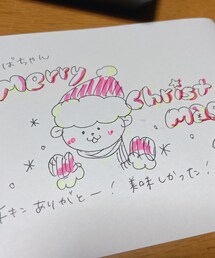 ばちゃん
Merry
Christ
mas
チキン ありがとー! 美味しかった!